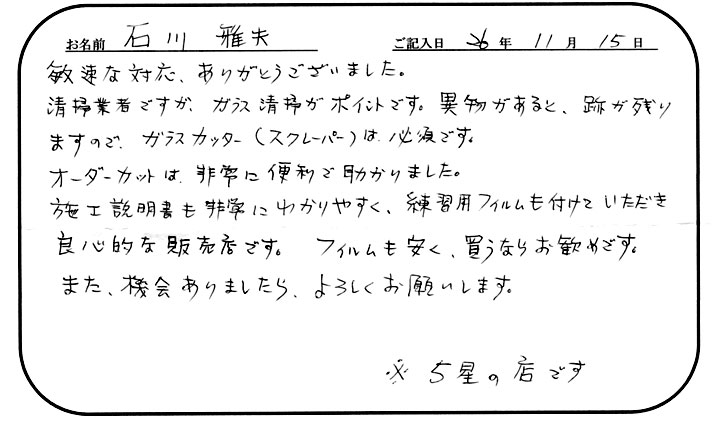 お名前 石川 雅夫 ご記入日 26年 11月 15日
敏速な対応、ありがとうございました。
清掃業者ですが、ガラス清掃がポイントです。異物があると、跡が残り
ますので、ガラスカッター(スクレーパー)は必須です。
オーダーカットは、非常に便利で助かりました。
施工説明書も非常にわかりやすく、練習用フィルムも付けていただき
良心的な販売店です。 フィルムも安く、買うならお歓めです。
また、機会ありましたら、よろしくお願いします。
※ 5星の店です